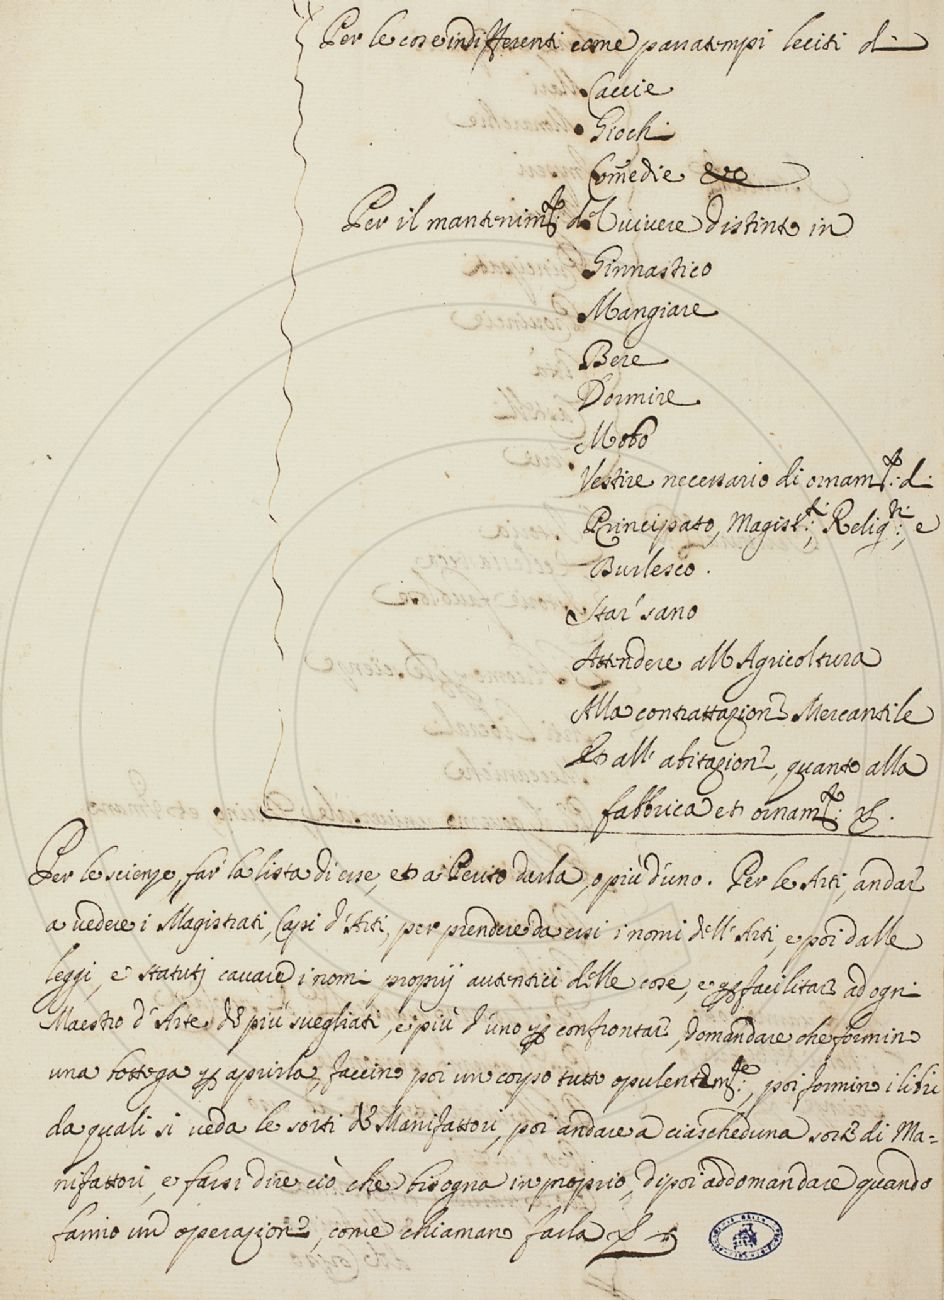 Per le cose indifferenti come passatempi leciti di
Caccie
Giochi
Com̃edie &c
Per il mantenim.to del vivere distinto in
Ginnastico
Mangiare
Bere
Dormire
Moto
Vestire necessario di ornam.to di
Principato, Magist.ti, Relig.ni, e
Burlesco.
Star' sano
Attendere all'Agricoltura
Alla contrattazione Mercantile
Et all' abitazione, quanto alla
fabbrica et ornam.to &.
Per le scienze, far la lista di esse, et a Perito darla, o più d'uno. Per le Arti, andar
a vedere i Magistrati, Capi d'Arti, per prendere da essi i nomi dell'Arti, e poi dalle
leggi, e statutj cavare i nomi proprij autentici delle cose, e per facilitare ad ogni
Maestro d'Arte de più svegliati, e più d'uno per confrontare, domandare che formino
una bottega per aprirla, faccino poi un corpo tutto opulentem.te, poi formino i libri
da quali si veda le sorti de Manifattori, poi andare a ciascheduna sorte di Ma=
nifattori, e farsi dire ciò che bisogna in proprio, di poi addomandare quando
fanno un operazione, come chiaman farla